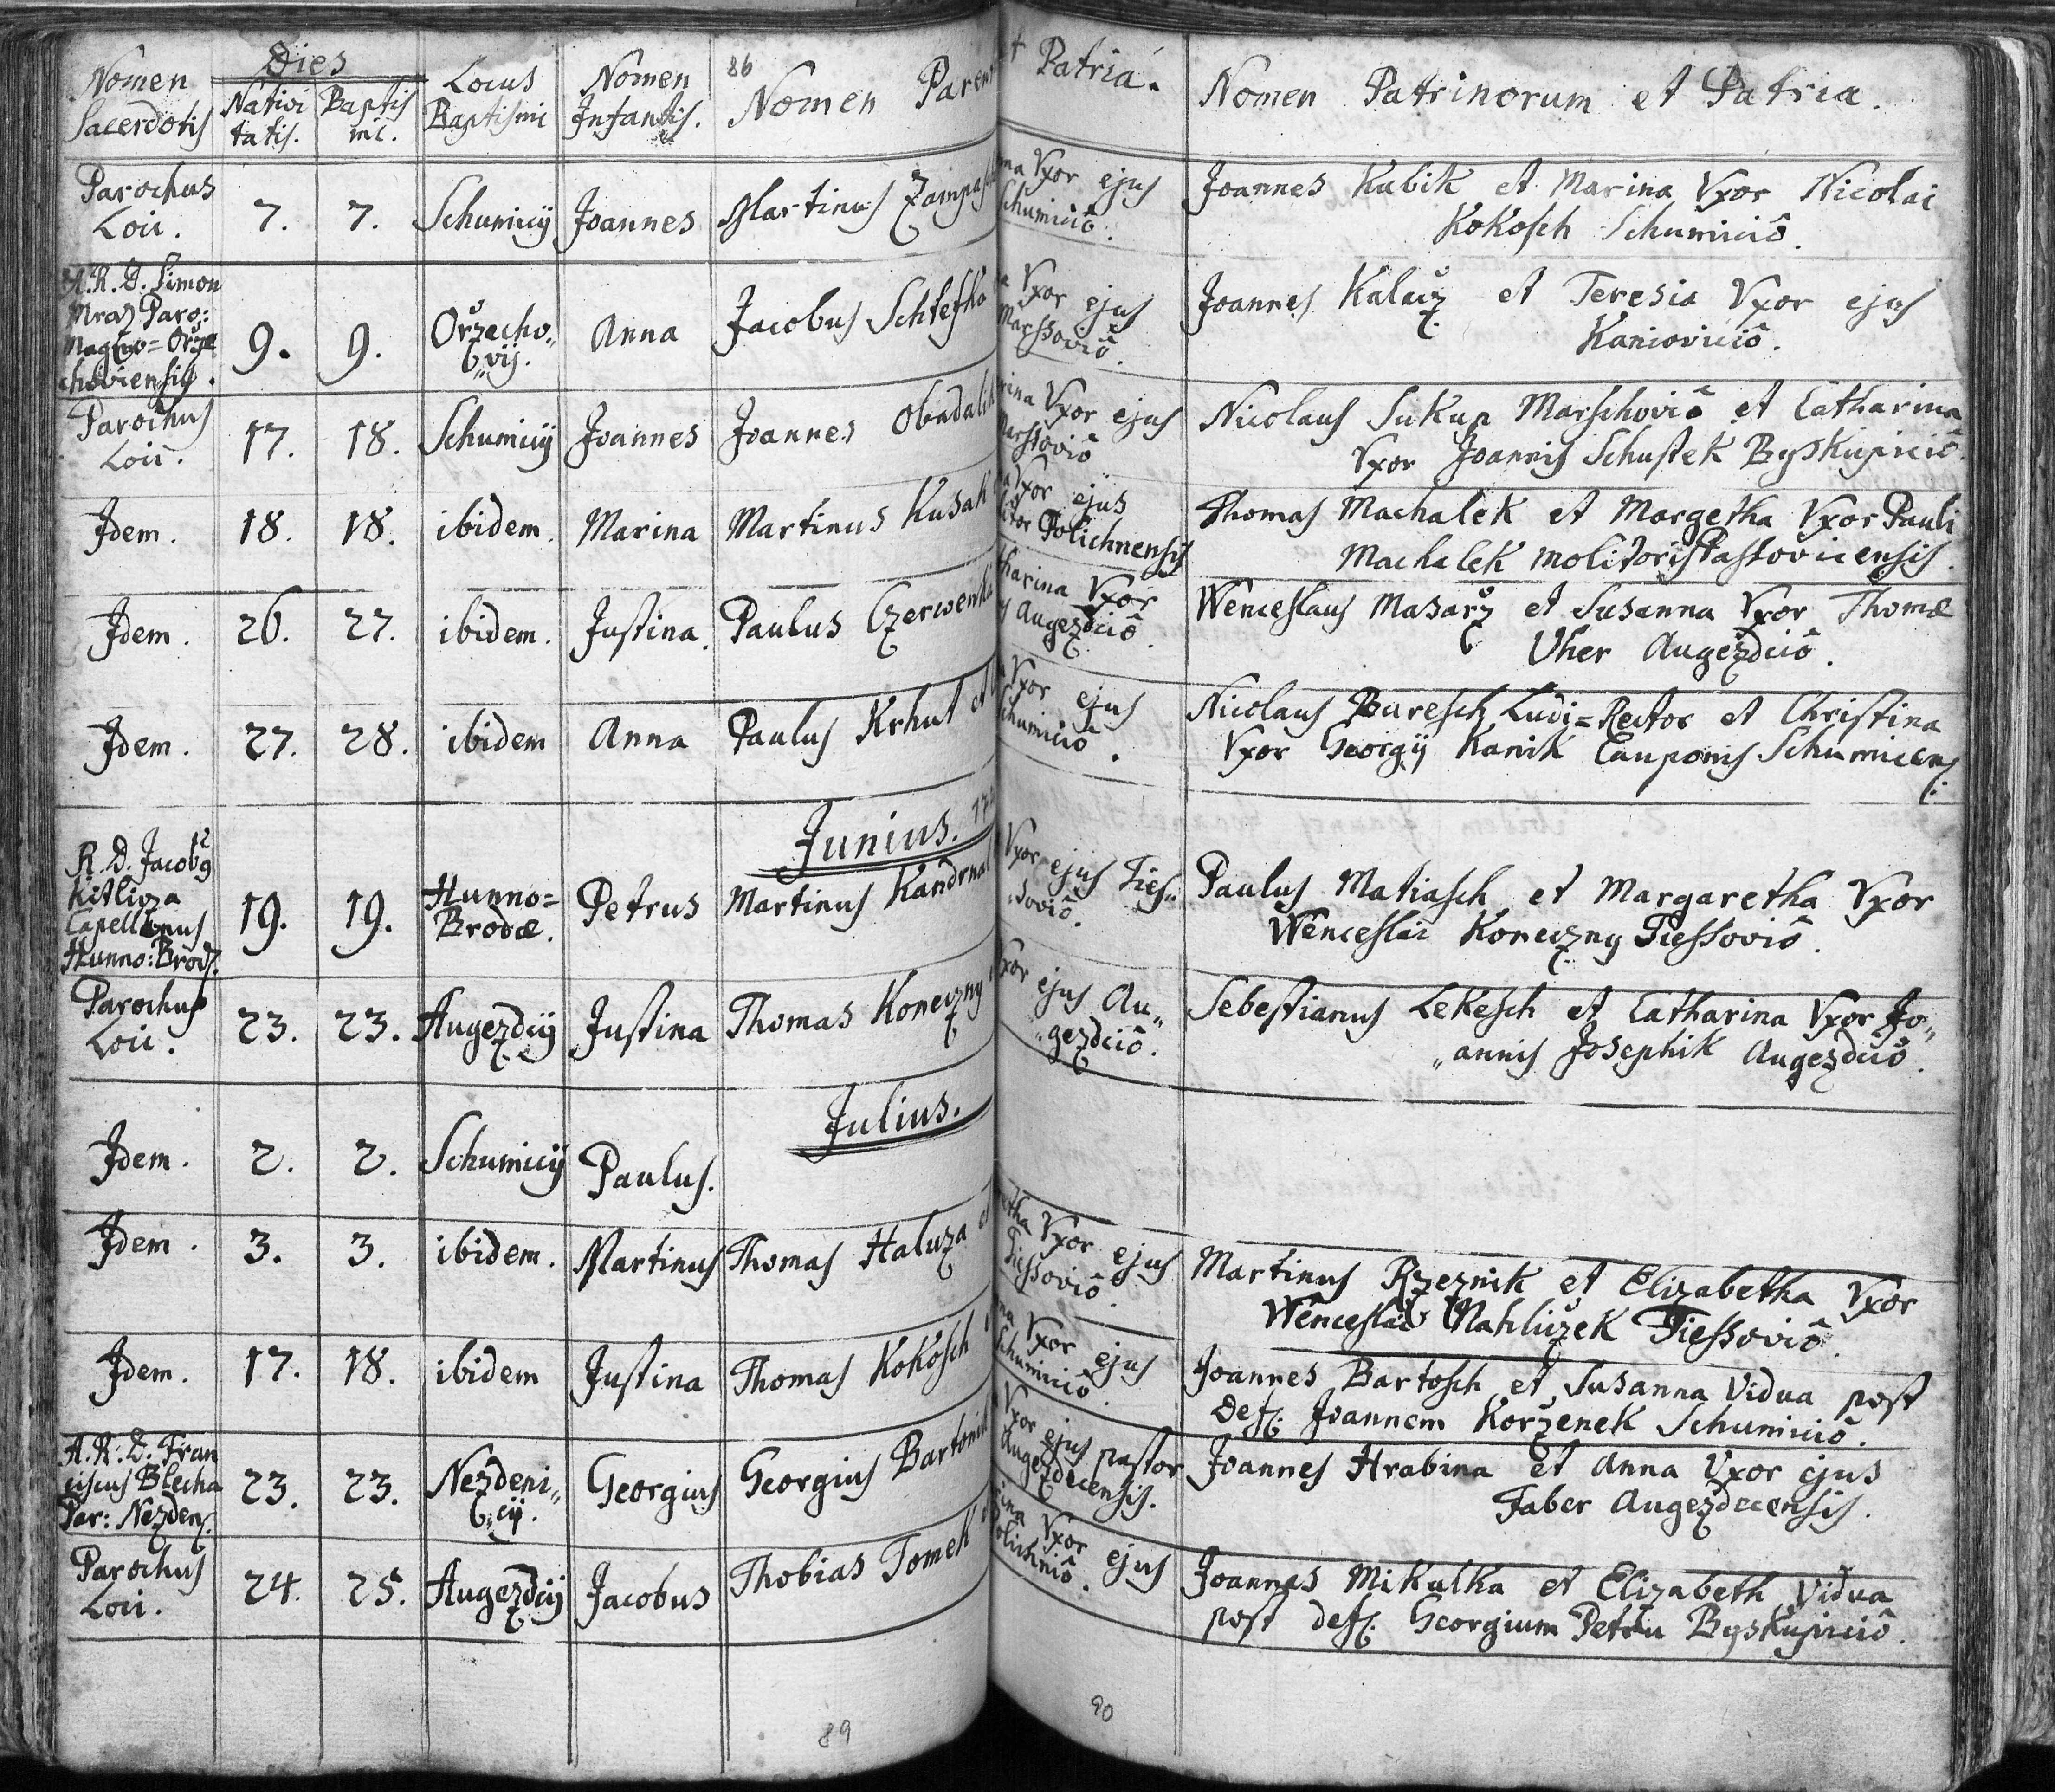 86
Nomen Sacerdotis
Dies
Nativi tatis.
Baptis mi.
Locus Baptismi
Nomen Infantis.
Nomen
et Patria.
Nomen Patrinorum et Patria.
Parochus
Loci.
7.
7.
Schumicij
Joannes
Martinus
Vxor ejus
Schumiciô.
Joannes Kubik et Marina Vxor Nicolai
Kokosch Schumiciô.
A.R.D. Simon
Mraz Paro:
Magno=Orže
choviensis.
9.
9.
Oržecho„
„vij.
Anna
Jacobus
Vxor ejus
Marssoviô.
Joannes Kalacz et Teresia Vxor ejus
Kanioviciô.
Parochus
Loci.
17.
18.
Schumicij
Joannes
Joannes Obadalek
Vxor ejus
Marssoviô
Nicolaus Sukup Marschoviô et Catharina
Vxor Joannis Schustek Byskupiciô.
Jdem.
18.
18.
ibidem.
Marina
Martinus Kusak
Vxor ejus
Polichnensis
Thomas Machalek et Margetha Vxor Pauli
Machalek molitoris Passovicensis.
Jdem.
26.
27.
ibidem.
Justina.
Paulus Czerwenka
Vxor
Augezdciô.
Wenceslaus Masarž et Susanna Vxor Thomæ
Vher Augezdciô.
Jdem.
27.
28.
ibidem
Anna
Paulus Krhut et
Vxor ejus
Schumiciô.
Nicolaus Buresch Ludi=Rector et Christina
Vxor Georgij Kanik Cauponis Schumicens:
Junius.
R.D. Jacobg
Kitlicza
Capellanus
Hunno:Brod.
19.
19.
Hunno=
Brodæ.
Petrus
Martinus Kandrnal
Vxor ejus Ties„
„soviô.
Paulus Matiasch et Margaretha Vxor
Wenceslai Koneczny Tiessoviô.
Parochus
Loci.
23.
23.
Augezdcij
Justina
Thomas Koneczny
Vxor ejus Au„
„gezdciô.
Sebestianus Lekesch et Catharina Vxor Jo„
„annis Josephik Augezdciô.
Julius.
Jdem.
2.
2.
Schumicij
Paulus.
Jdem.
3.
3.
ibidem.
Martinus
Thomas Haluza et
Vxor ejus
Tiessoviô.
Martinus Rzeznik et Elizabetha Vxor
Wenceslai Mahliczek Tiessoviô.
Jdem.
17.
18.
ibidem
Justina
Thomas Kokosch
Vxor ejus
Schumiciô.
Joannes Bartosch et Susanna Vidua post
def: Joannem Korženek Schumiciô.
A.R.D. Fran
ciscus Blecha
Par: Nezden:
23.
23.
Nezdeni„
„cij.
Georgius
Georgius Bartonik
Vxor ejus pastor
Augezdecensis.
Joannes Hrabina et Anna Vxor ejus
Faber Augezdecensis.
Parochus
Loci.
24.
25.
Augezdcij
Jacobus
Thobias Tomek
Vxor ejus
Polichniô.
Joannes Mikulka et Elizabeth Vidua
post def: Georgium Petru Byskupiciô.
89
90